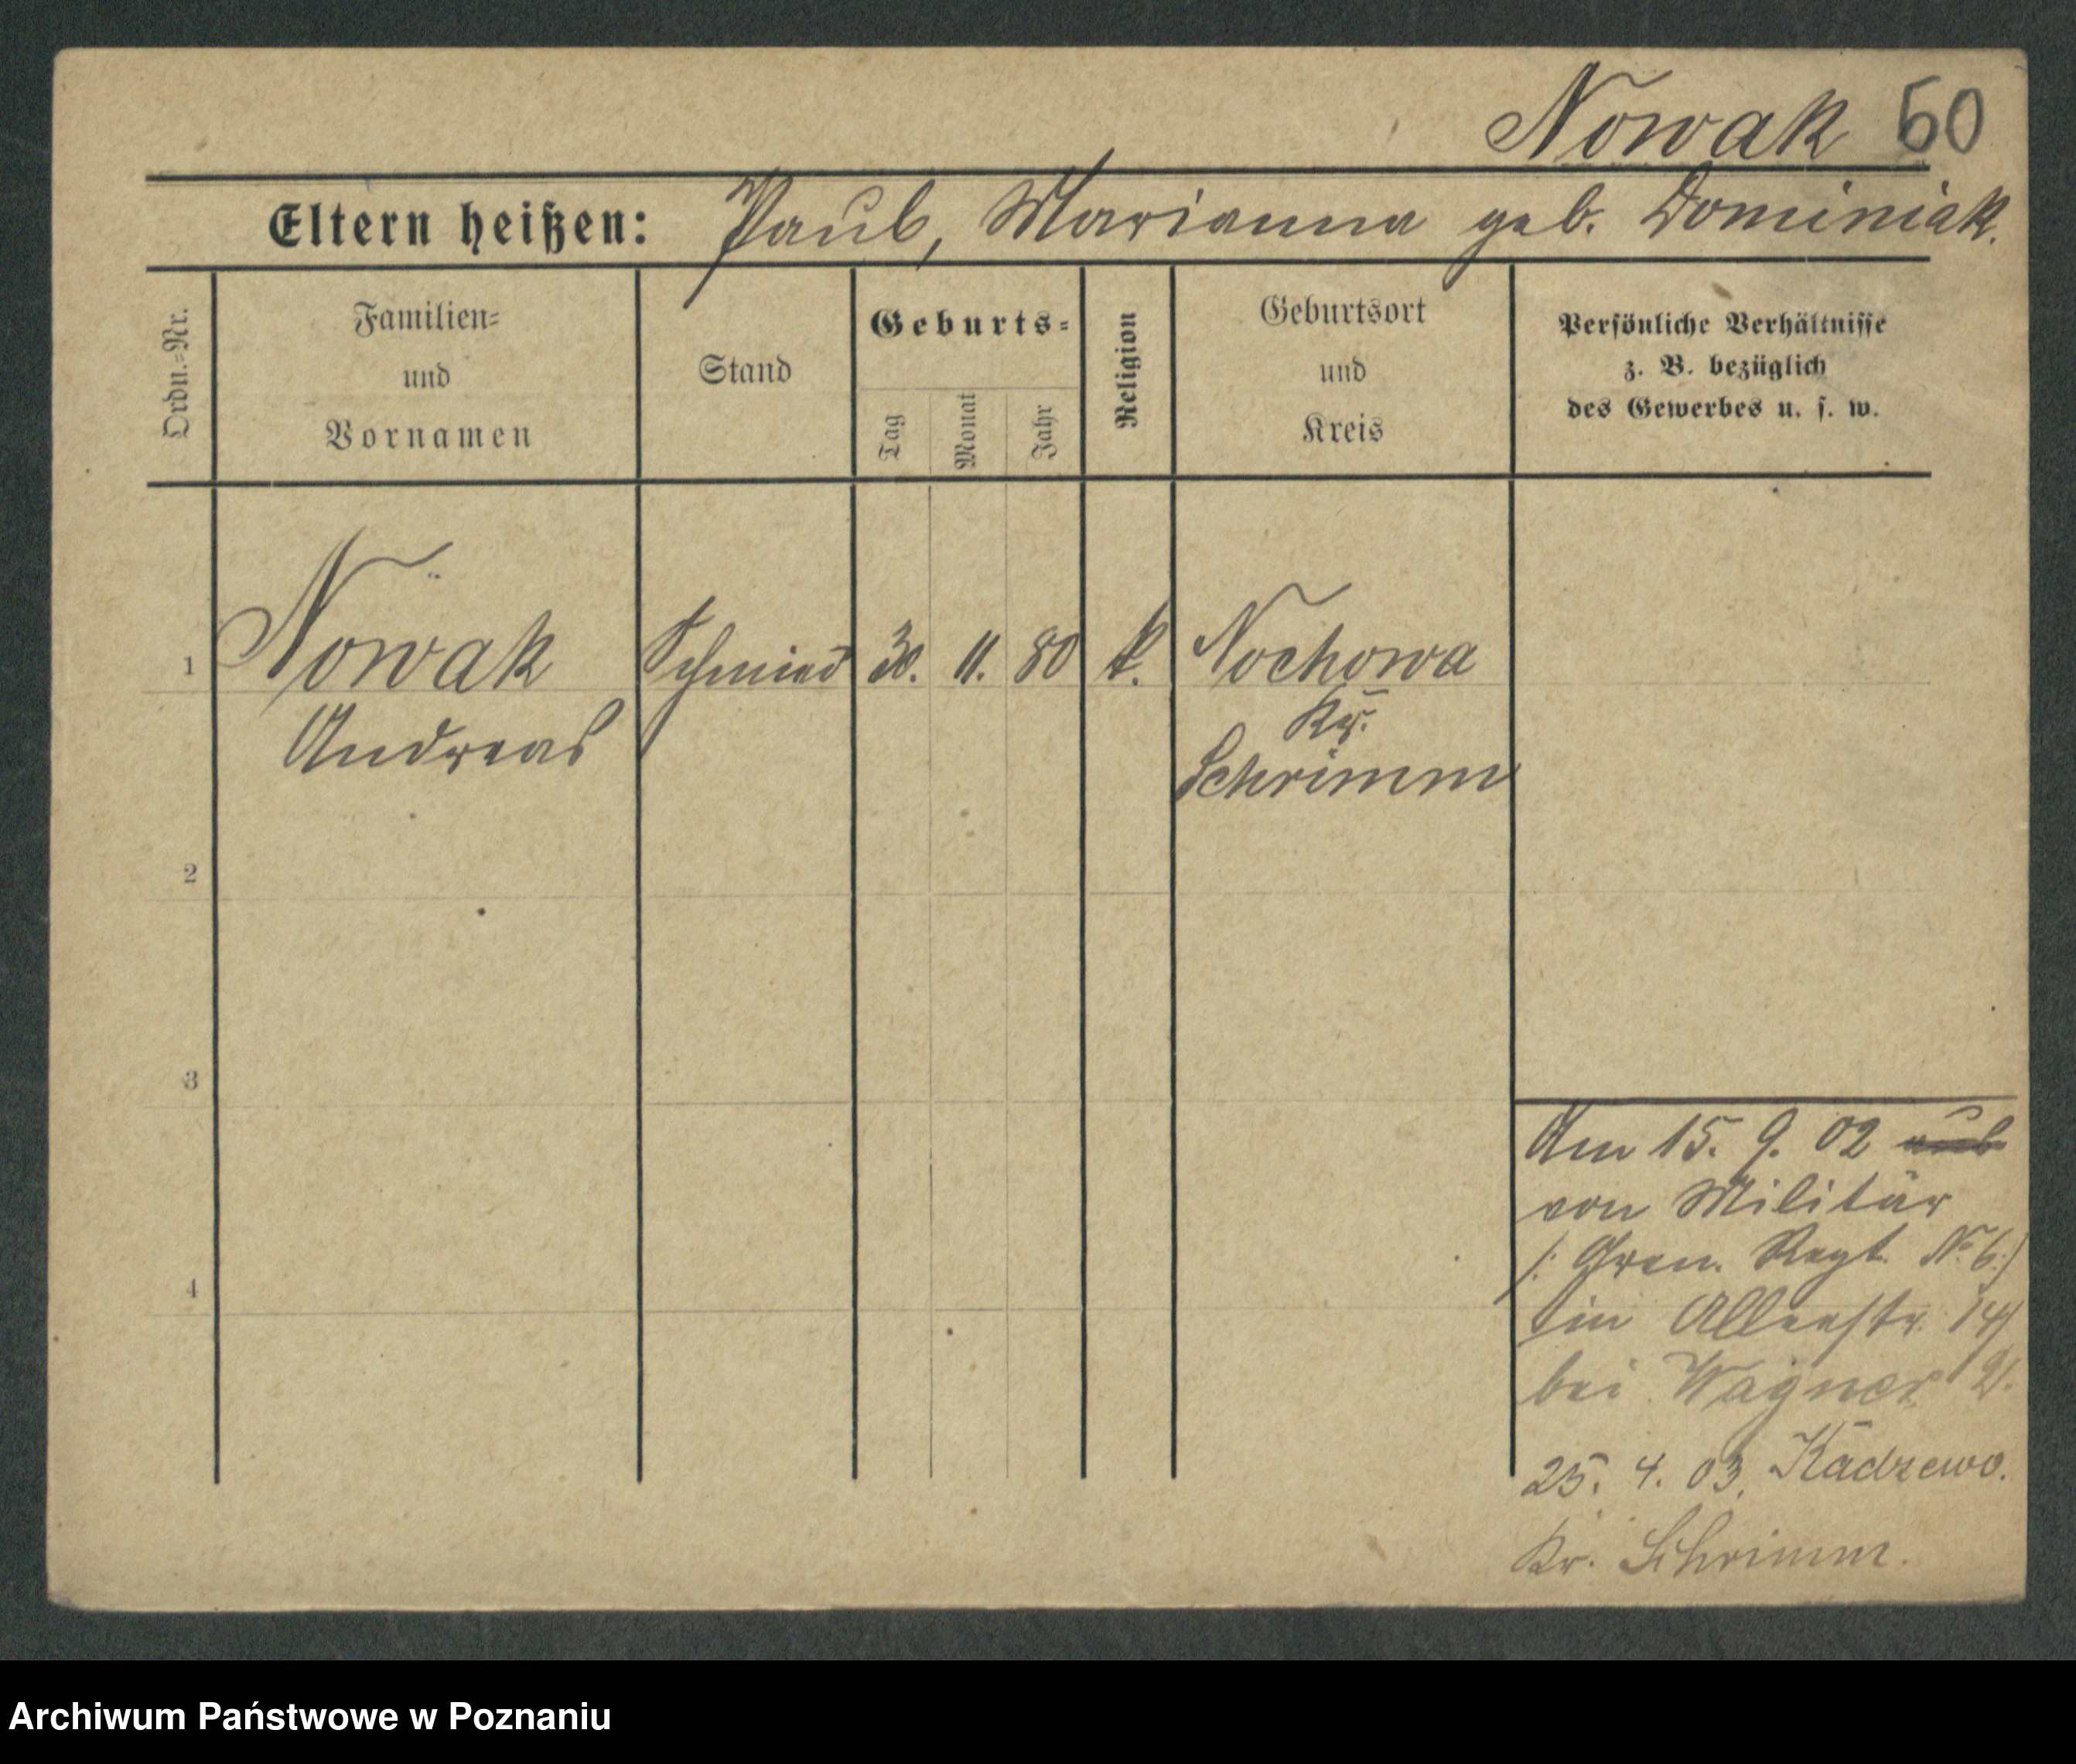 Nowak 60
Eltern heißen: Paul, Marianna geb. Dominiak.
Ordn.-Nr.
Familien-
und
Vornamen
Stand
Geburts-
Tag
Monat
Jahr
Religion
Geburtsort
und
Kreis
Persönliche Verhältnisse
z. B. bezüglich
des Gewerbes u. s. w.
1 Nowak Schmied 30. 11. 80 k. Nochowa
Andreas
Kr.
Schrimm
2
3
4
Am 15. 9. 02
von Militär
/: Gren. Regt. No 6:/
in Alleestr. 14
bei Wagner
25. 4. 03. Kadzewo.
Kr. Schrimm.
Archiwum Państwowe w Poznaniu